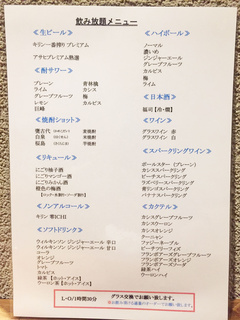 飲み放題メニュー
≪生ビール≫
キリン一番搾りプレミアム
アサヒプレミアム熟撰
≪酎サワー≫
プレーン
ライム
グレープフルーツ
レモン
巨峰
青林檎
カシス
梅
カルピス
≪焼酎ショット≫
≪リキュール≫
にごり柚子酒
にごりマンゴー酒
にごりみかん酒
≪ノンアルコール≫
キリン 零ICHI
≪ソフトドリンク≫
ウィルキンソン ジンジャーエール 辛口
ウィルキンソン ジンジャーエール 甘口
コーラ
オレンジ
グレープフルーツ
トマト
カルピス
緑茶【ホット・アイス】
ウーロン茶【ホット・アイス】
≪ハイボール≫
ノーマル
濃いめ
ジンジャーエール
グレープフルーツ
カルピス
梅
ライム
≪日本酒≫
福司【冷・燗】
≪ワイン≫
グラスワイン 赤
グラスワイン 白
≪スパークリングワイン≫
ポールスター（プレーン）
カシススパークリング
ピーチスパークリング
ラズベリースパークリング
オレンジスパークリング
バナナスパークリング
≪カクテル≫
カシスグレープフルーツ
カシスオレンジ
カシスウーロン
ファジーネーブル
ピーチグレープフルーツ
緑茶ハイ
ウーロンハイ
L・O/1時間30分
グラス交換でお願い致します。